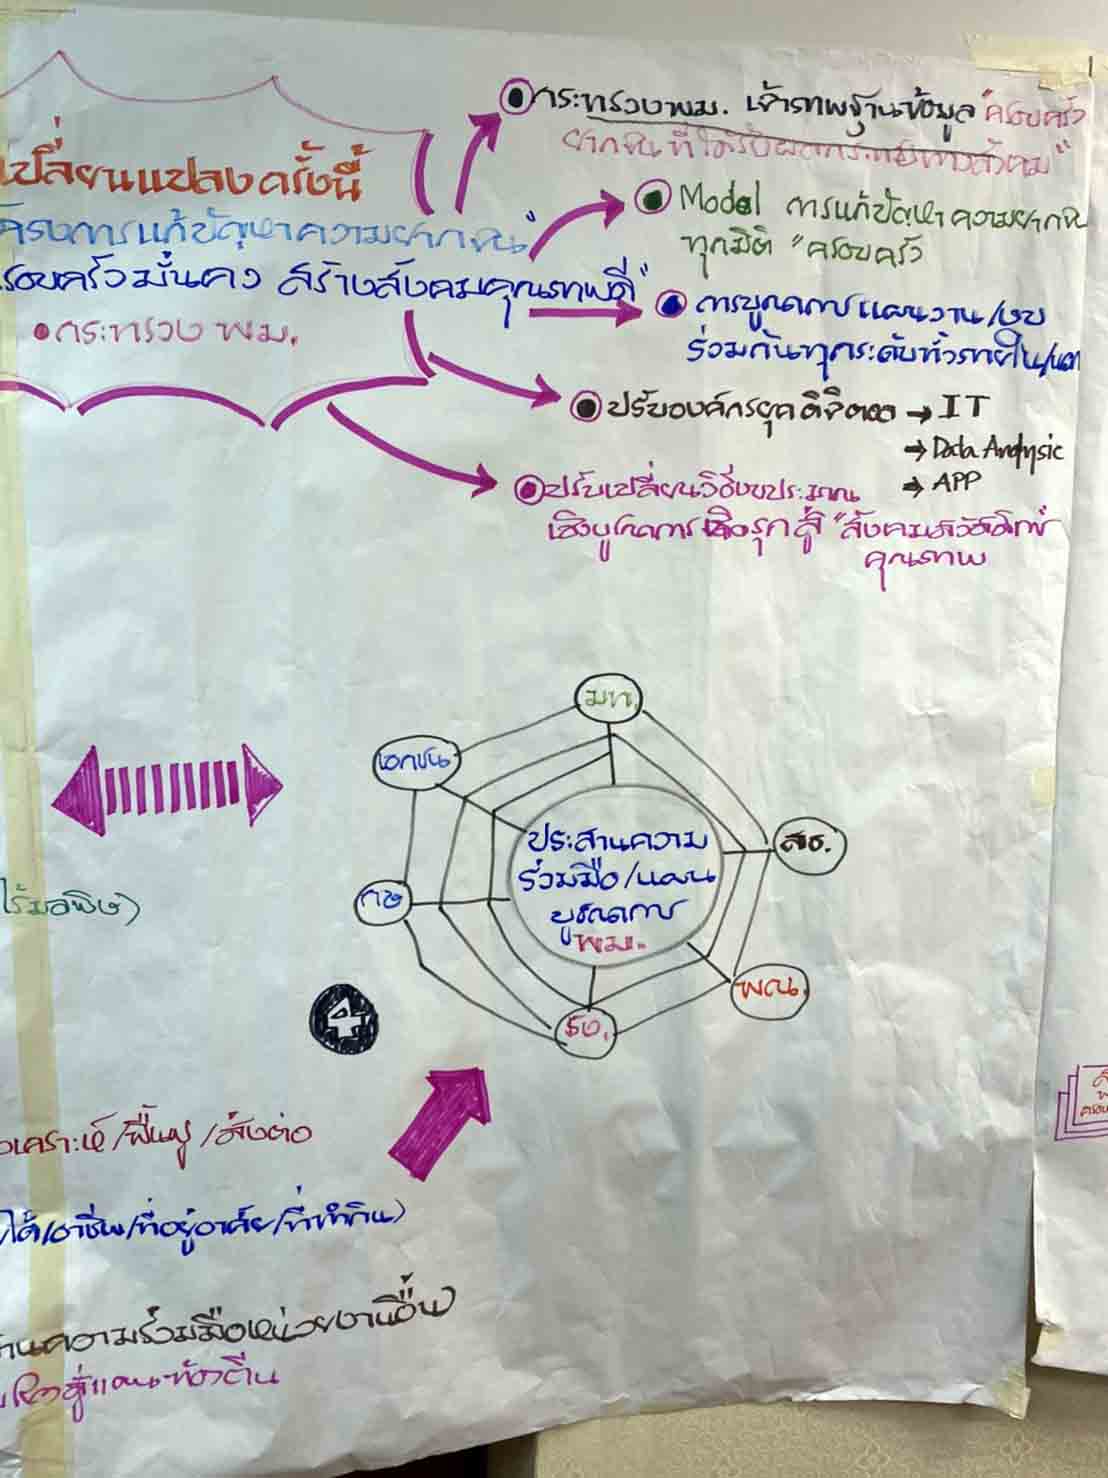 กระทรวงพม. เจ้าภาพฐานข้อมูล "ครอบครัว
ยากจนที่ได้รับผลกระทบทางสังคม"
เปลี่ยนแปลงครั้งนี้
โครงการแก้ปัญหาความยากจน"
ครอบครัวมั่นคง สร้างสังคมคุณภาพที่ดี"
กระทรวง พม.
Model การแก้ปัญหาความยากจน
ทุกมิติ "ครอบครัว
การบูรณาการแผนงาน/งบ
ร่วมกันทุกระดับทั้งภายใน/นอก
ปรับองค์กรยุคดิจิตอล → IT
→ Data Analysic
→ APP
ปรับเปลี่ยนวิธีงบประมาณ
เชิงบูรณาการเชิงรุกสู่ "สังคมสวัสดิการ
คุณภาพ
มท.
เอกชน
สธ.
กษ
พณ.
รง.
ประสานความ
ร่วมมือ/แผน
บูรณาการ
พม.
ไร้มลพิษ)
4
เคราะห์/ฟื้นฟู/ส่งต่อ
ได้/อาชีพ/ที่อยู่อาศัย/ที่ทำกิน)
านความร่วมมือหน่วยงานอื่น)
ท้องถิ่น